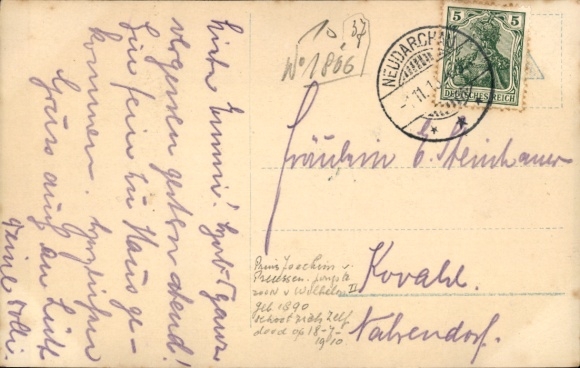 Liebe Emmi! Hab's ganz
vergessen gestern abend!
Bin fein zu Haus ge-
kommen. Herzlichen
Gruss auch an Lisbt
Deine Lolli.
10
37
No 1866
NEUDARCHAU
11.1
5 5
DEUTSCHES REICH
Fräulein E. Steinhauer
Kovahl.
Nahrendorf.
Prins Joachim v.
Preussen. jongste
zoon v Wilhelm II
geb 1890
schoot zich zelf
dood op 18-7-
1910